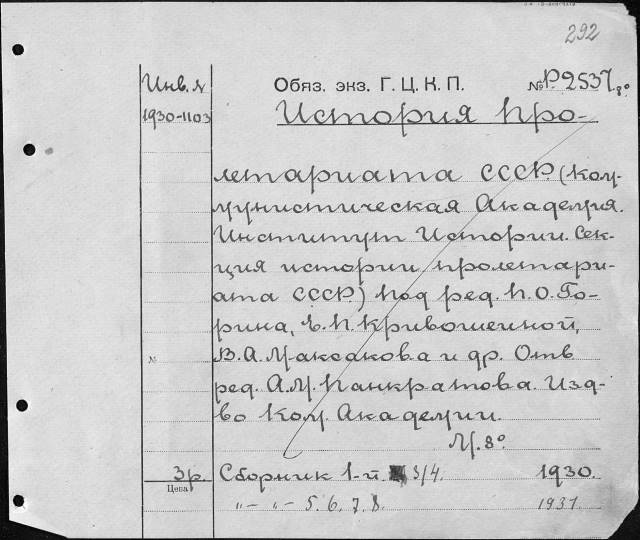 292
Инв. №
Обяз. экз. Г. Ц. К. П.
№ Р.2537. 8°
1930-1103
История про-
летариата СССР. (Ком-
мунистическая Академия.
Институт Истории. Сек-
ция истории пролетари-
ата СССР.) Под ред. П. О. Го-
рина, Е. П. Кривошеиной,
№
В. А. Максакова и др. Отв.
ред. А. М. Панкратова. Изд-
во Ком. Академии.
М. 8°.
3 р. Сборник 1-й. 3/4. 1930.
Цена
"— "— 5. 6. 7. 8. 1931.